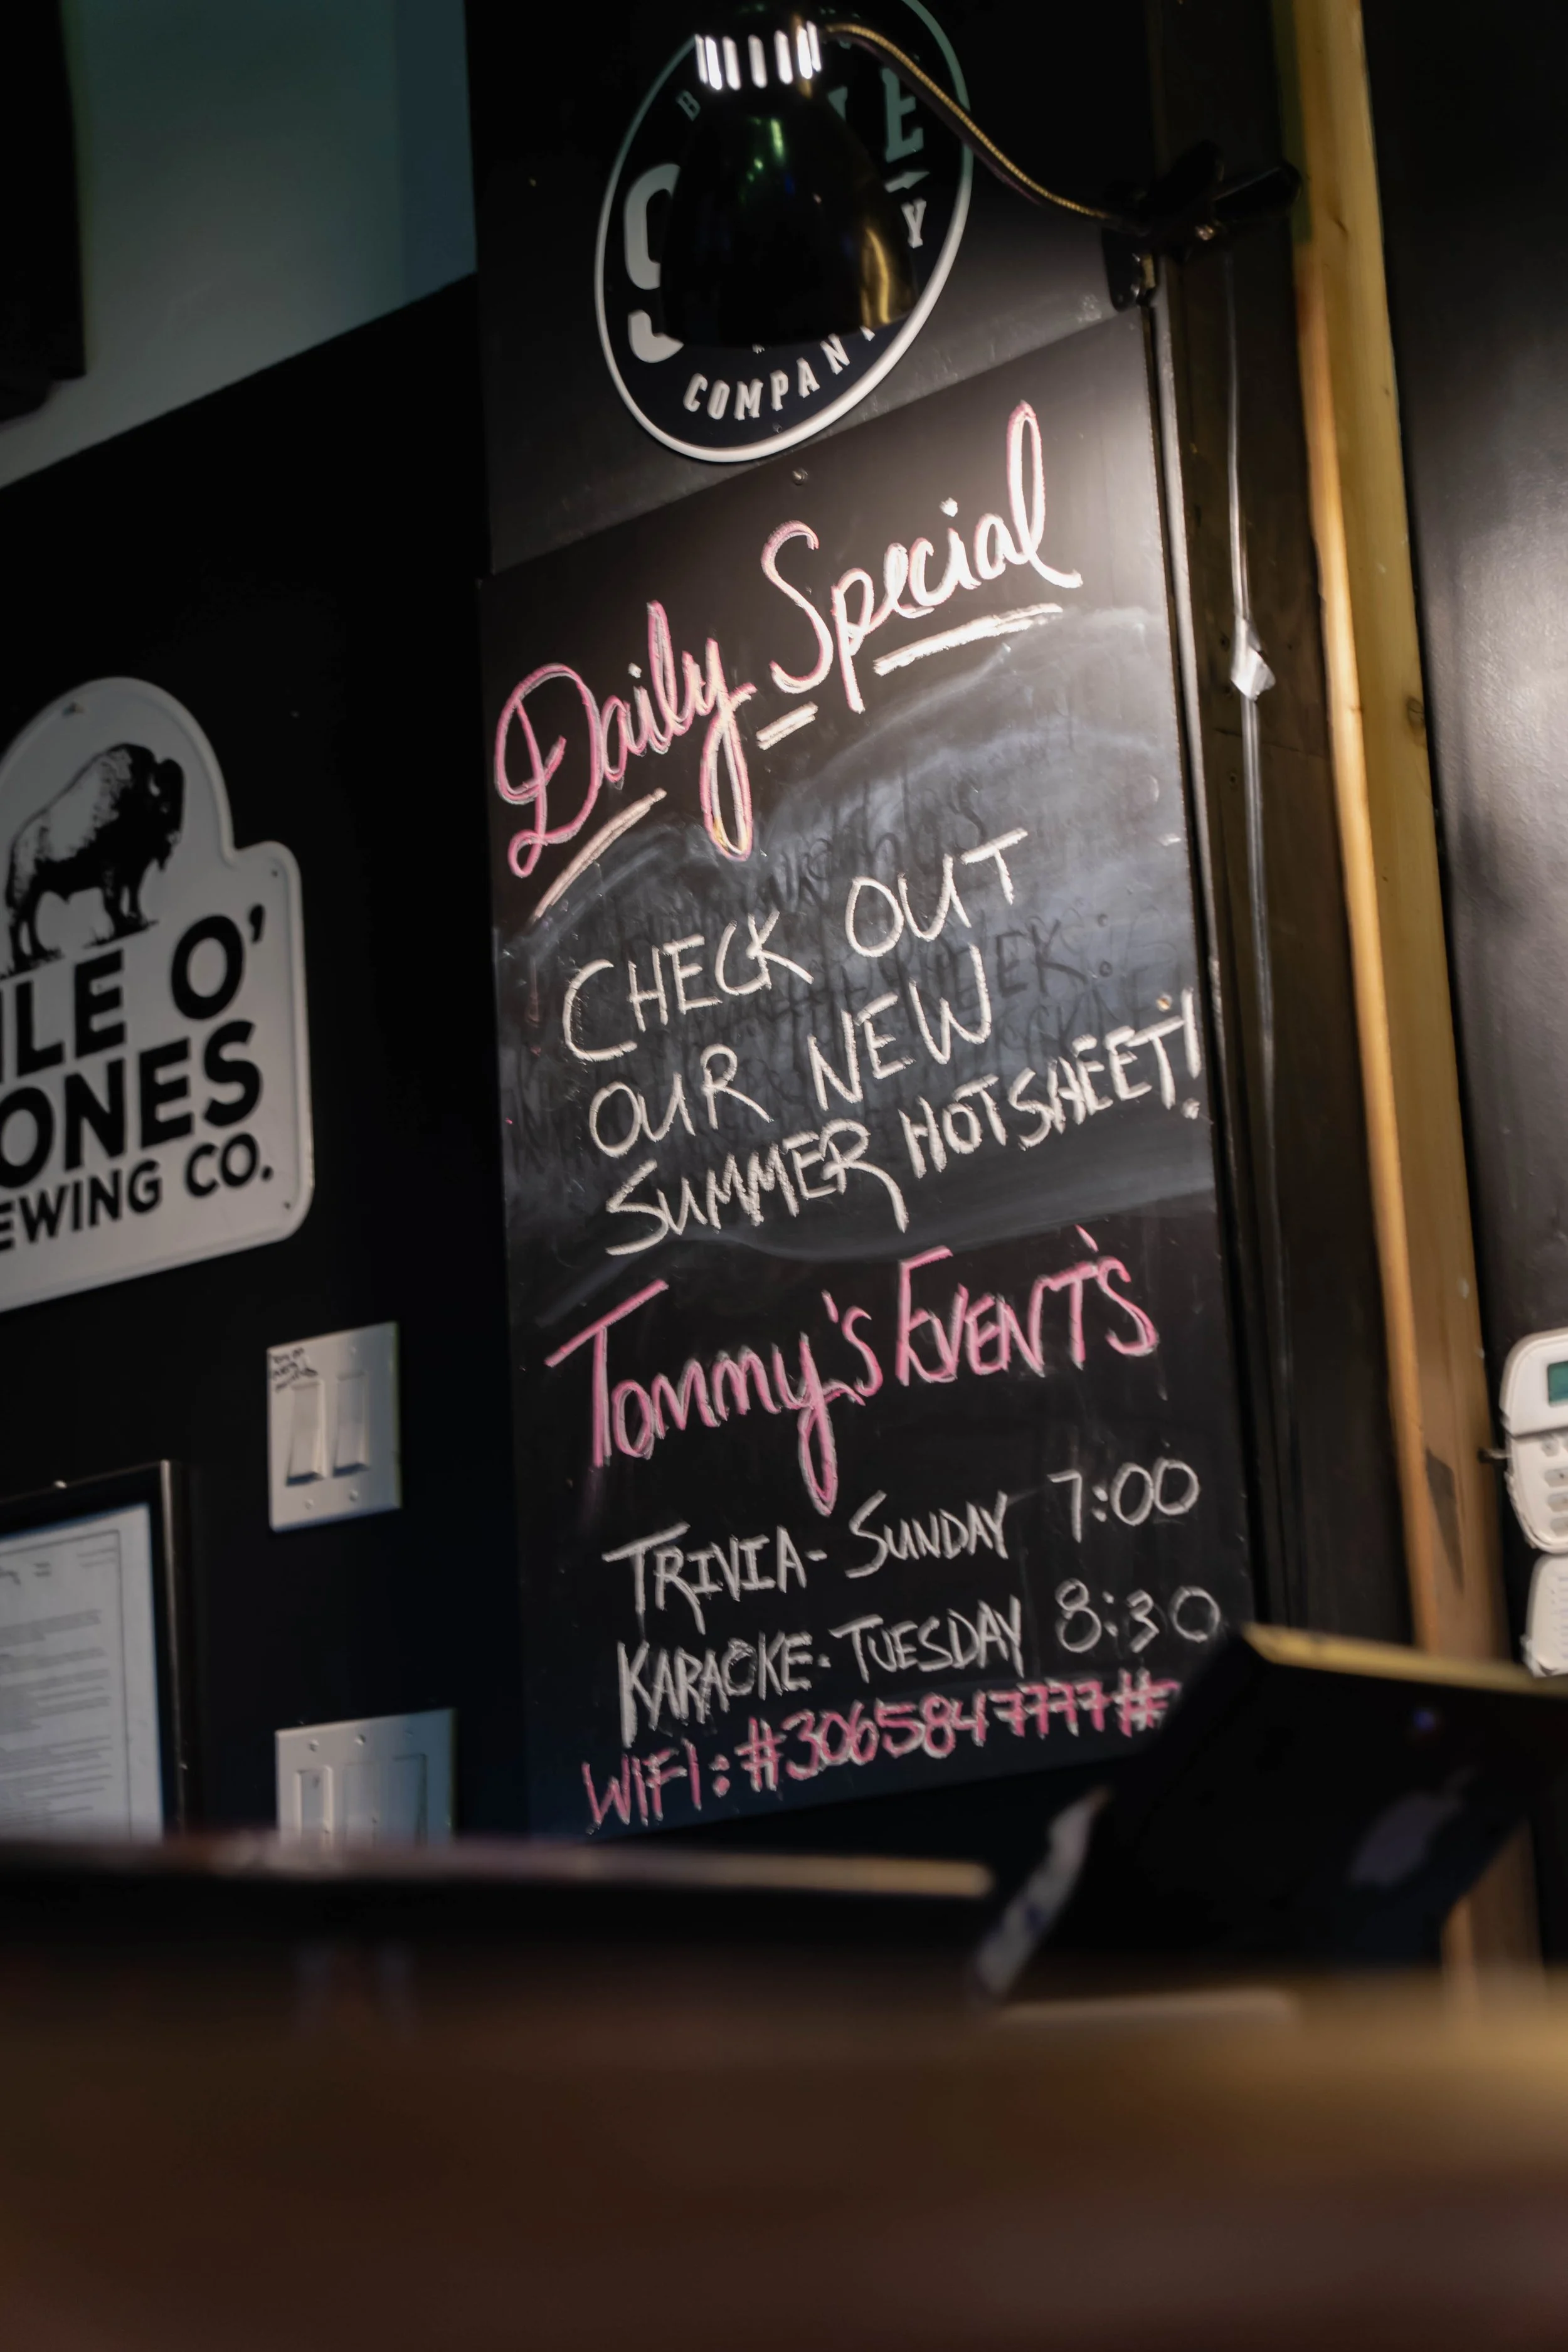 COMPANY
Daily Special
CHECK OUT
OUR NEW
SUMMER HOTSHEET!
Tommy's EVENT'S
TRIVIA- SUNDAY 7:00
KARAOKE- TUESDAY 8:30
WIFI: #3065847777#
O'
CO.